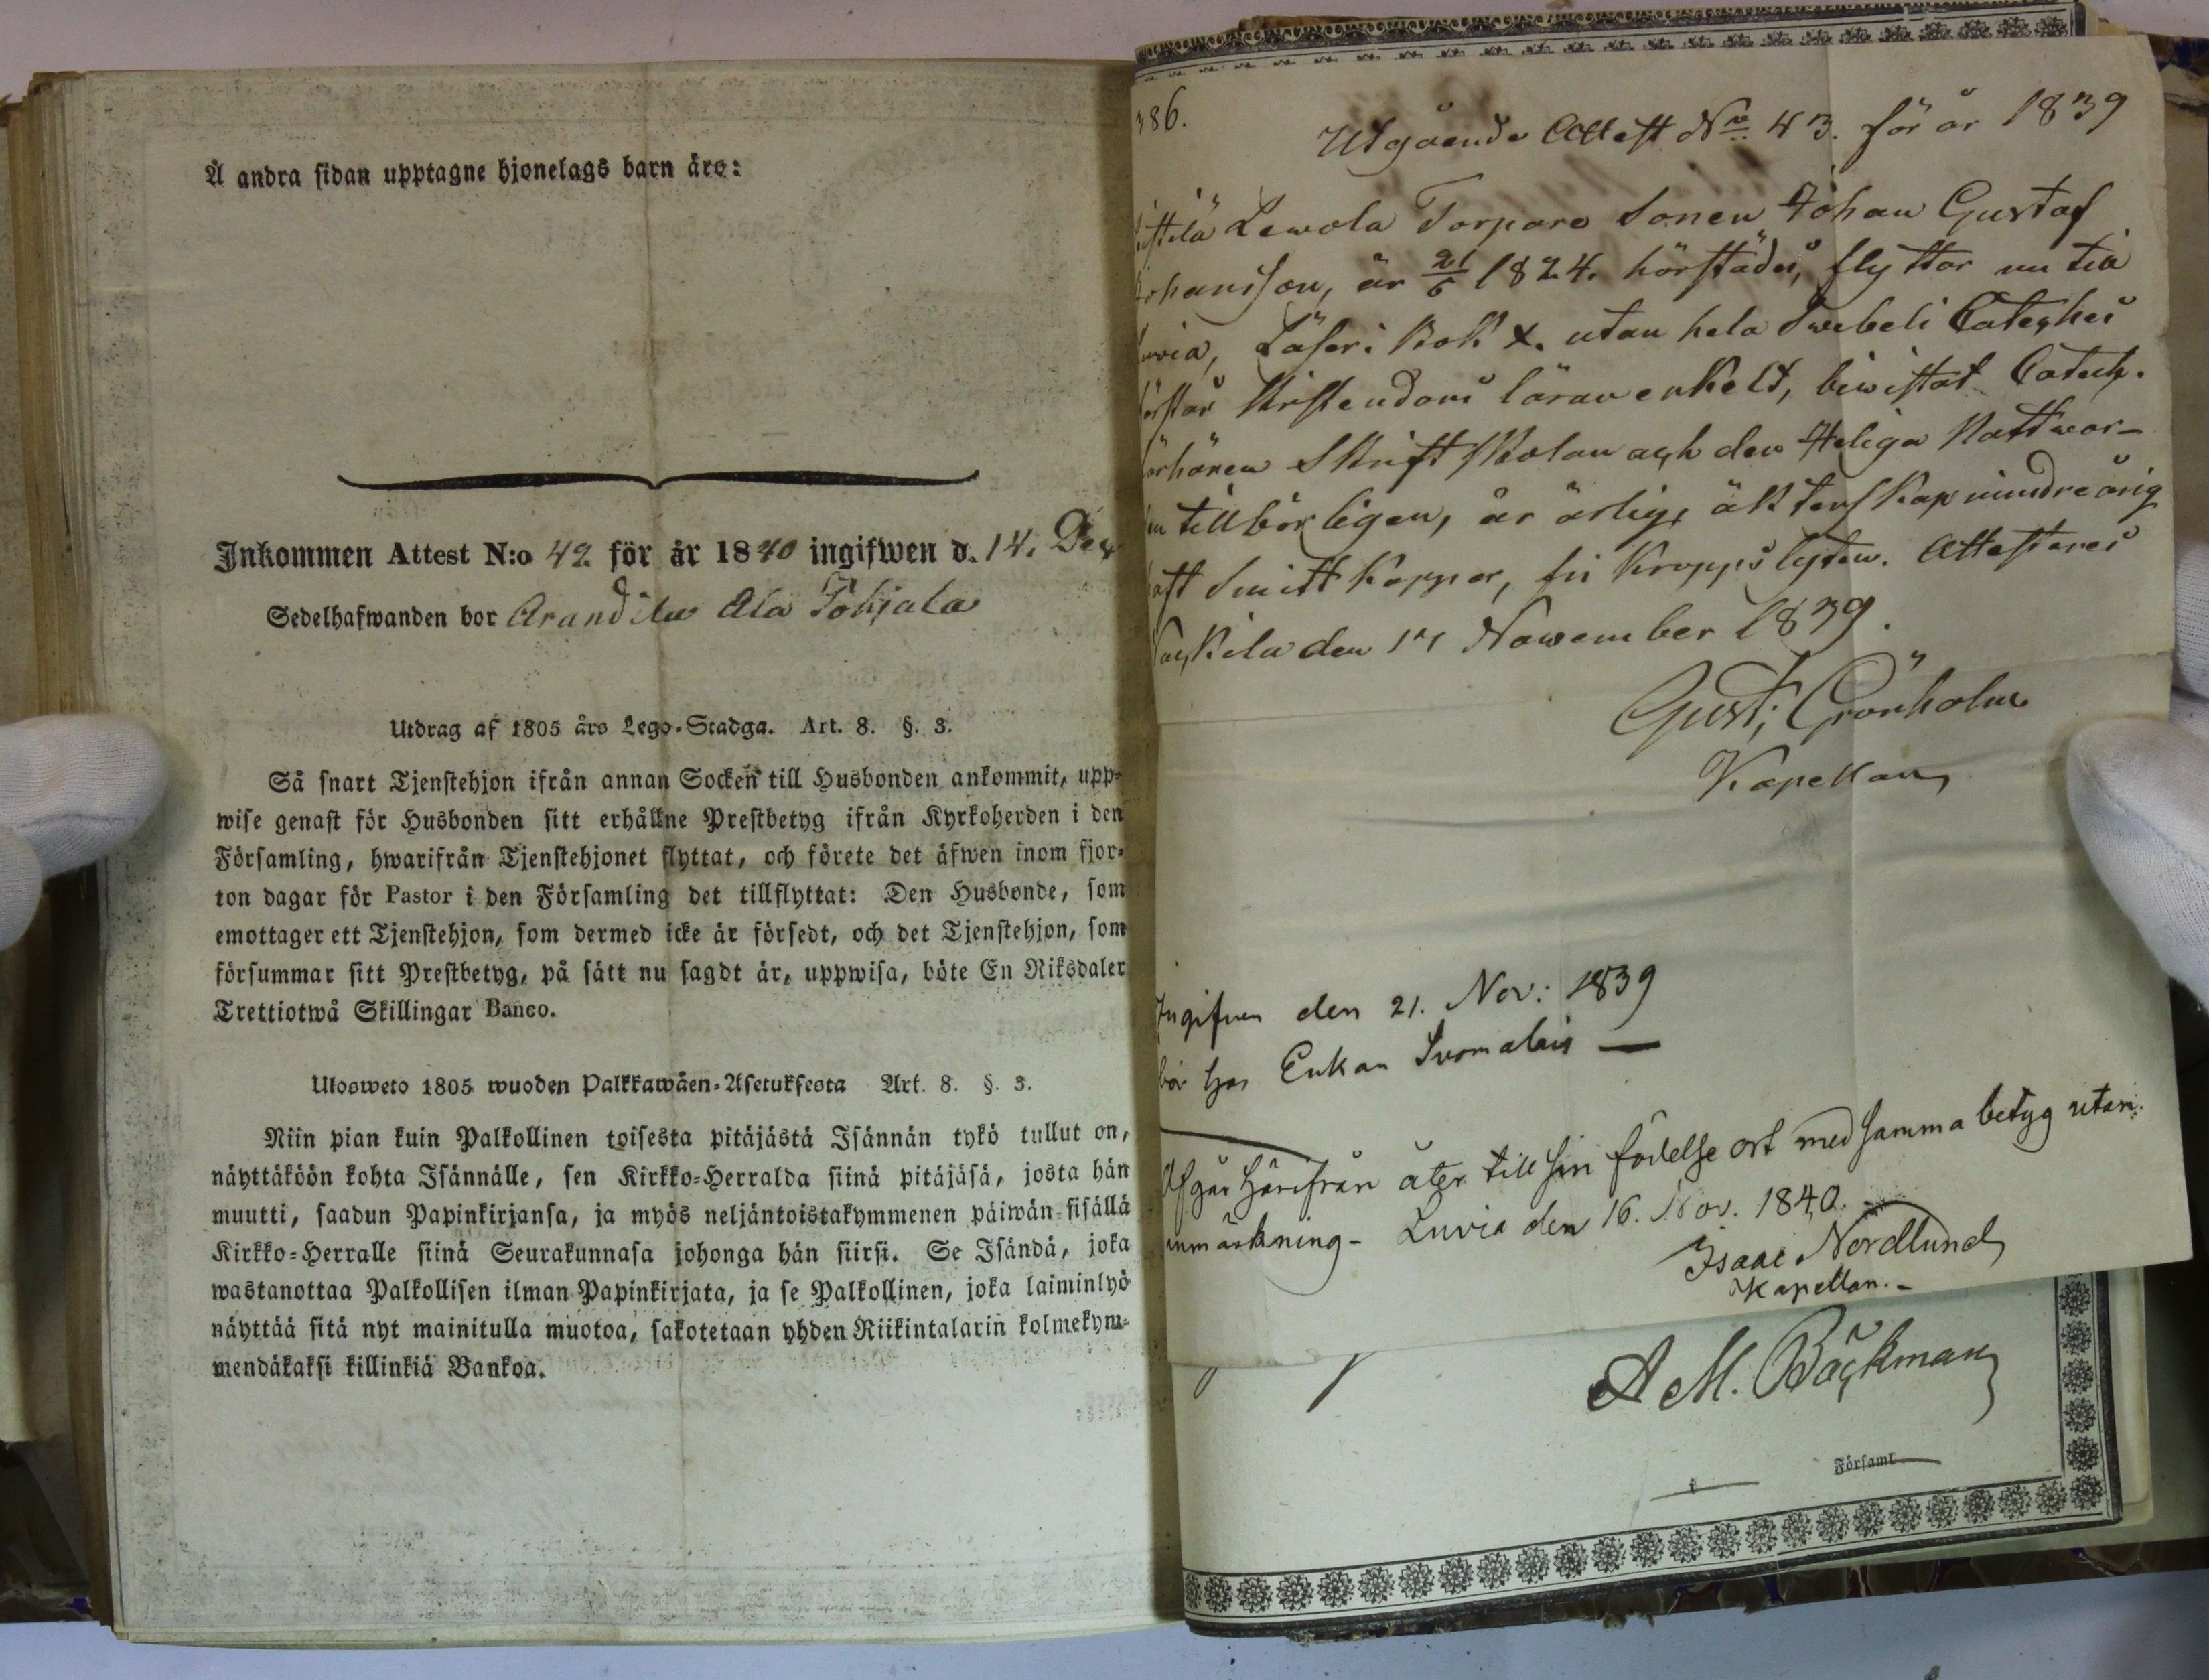 Å andra sidan upptagne hjonelags barn äro:
Inkommen Attest N:o 42 för år 1840 ingifwen d. 14. Dec
Sedelhafwanden bor Arandila Ala Pohjala
Utdrag af 1805 års Lego-Stadga. Art. 8. §. 3.
Så snart Tjenstehjon ifrån annan Socken till Husbonden ankommit, upp-
wise genast för Husbonden sitt erhållne Prestbetyg ifrån Kyrkoherden i den
Församling, hwarifrån Tjenstehjonet flyttat, och förete det äfwen inom fjor-
ton dagar för Pastor i den Församling det tillflyttat: Den Husbonde, som
emottager ett Tjenstehjon, som dermed icke är försedt, och det Tjenstehjon, som
försummar sitt Prestbetyg, på sätt nu sagdt är, uppwisa, böte En Riksdaler
Trettiotwå Skillingar Banco.
Ulosweto 1805 wuoden Palkkawäen-Asetuksesta Art. 8. §. 3.
Niin pian kuin Palkollinen toisesta pitäjästä Isännän tykö tullut on,
näyttäköön kohta Isännälle, sen Kirkko-Herralda siinä pitäjäsä, josta hän
muutti, saadun Papinkirjansa, ja myös neljäntoistakymmenen päiwän sisällä
Kirkko-Herralle siinä Seurakunnasa johonga hän siirsi. Se Isändä, joka
wastanottaa Palkollisen ilman Papinkirjata, ja se Palkollinen, joka laiminlyö
näyttää sitä nyt mainitulla muotoa, sakotetaan yhden Riikintalarin kolmekym-
mendäkaksi killinkiä Bankoa.
386.
Utgående Attest No 43. för år 1839
Lewola Torpare Sonen Johan Gustaf
Johansson, är 21/6 1824. härstädes, flyttar nu till
Luvia, Läser i Bok x. utan hela Swebeli Cateches
förstår Kristendoms läran enkelt, biwistat Catech.
förhören Skriftskolan och den Heliga Nattwar-
den tillbörligen, är ärlig, äktenskap minderårig
haft Smittkoppor, fri Kroppslyten. Attesteres
den 17 Nowember 1839.
Gust. Grönholm
Kapellan
Ingifven den 21. Nov: 1839
bor hos Enkan Suomalais —
Afgår härifrån åter till sin födelse ort med samma betyg utan
anmärkning - Luvia den 16. Nov. 1840.
Isaac Nordlund
Kapellan. -
A M. Bäckman
Församl